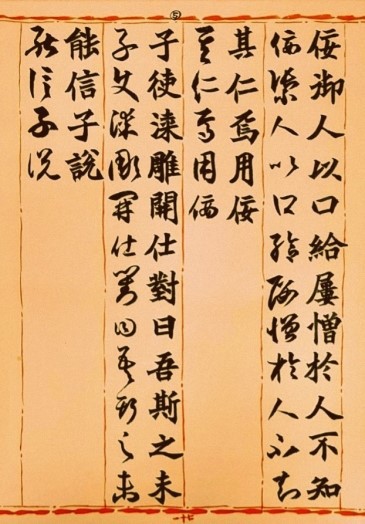 佞御人以口給屢憎於人不知
佞禦人以口給屢憎於人不知
其仁焉用佞
其仁焉用佞
子使漆雕開仕對曰吾斯之未
子使漆雕開仕對曰吾斯之未
能信子說
能信子說